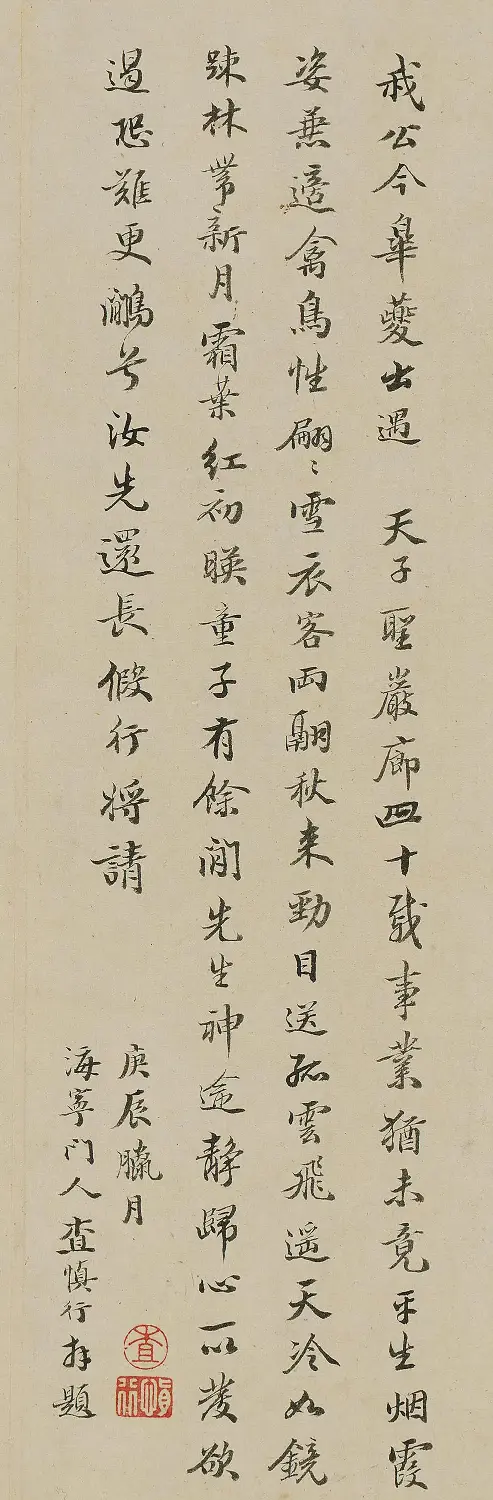 我公今臯夔出遇 天子聖巖廊四十載事業猶未竟平生烟霞
姿兼適禽鳥性翩〻雪衣客両翮秋来勁目送孤雲飛遥天冷如鏡
踈林帶新月霜葉紅初暎童子有餘閒先生神逾静歸心一以發欲
遏恐難更鷴兮汝先還長假行将請
庚辰臘月
海寧門人查慎行拜題
查
慎行